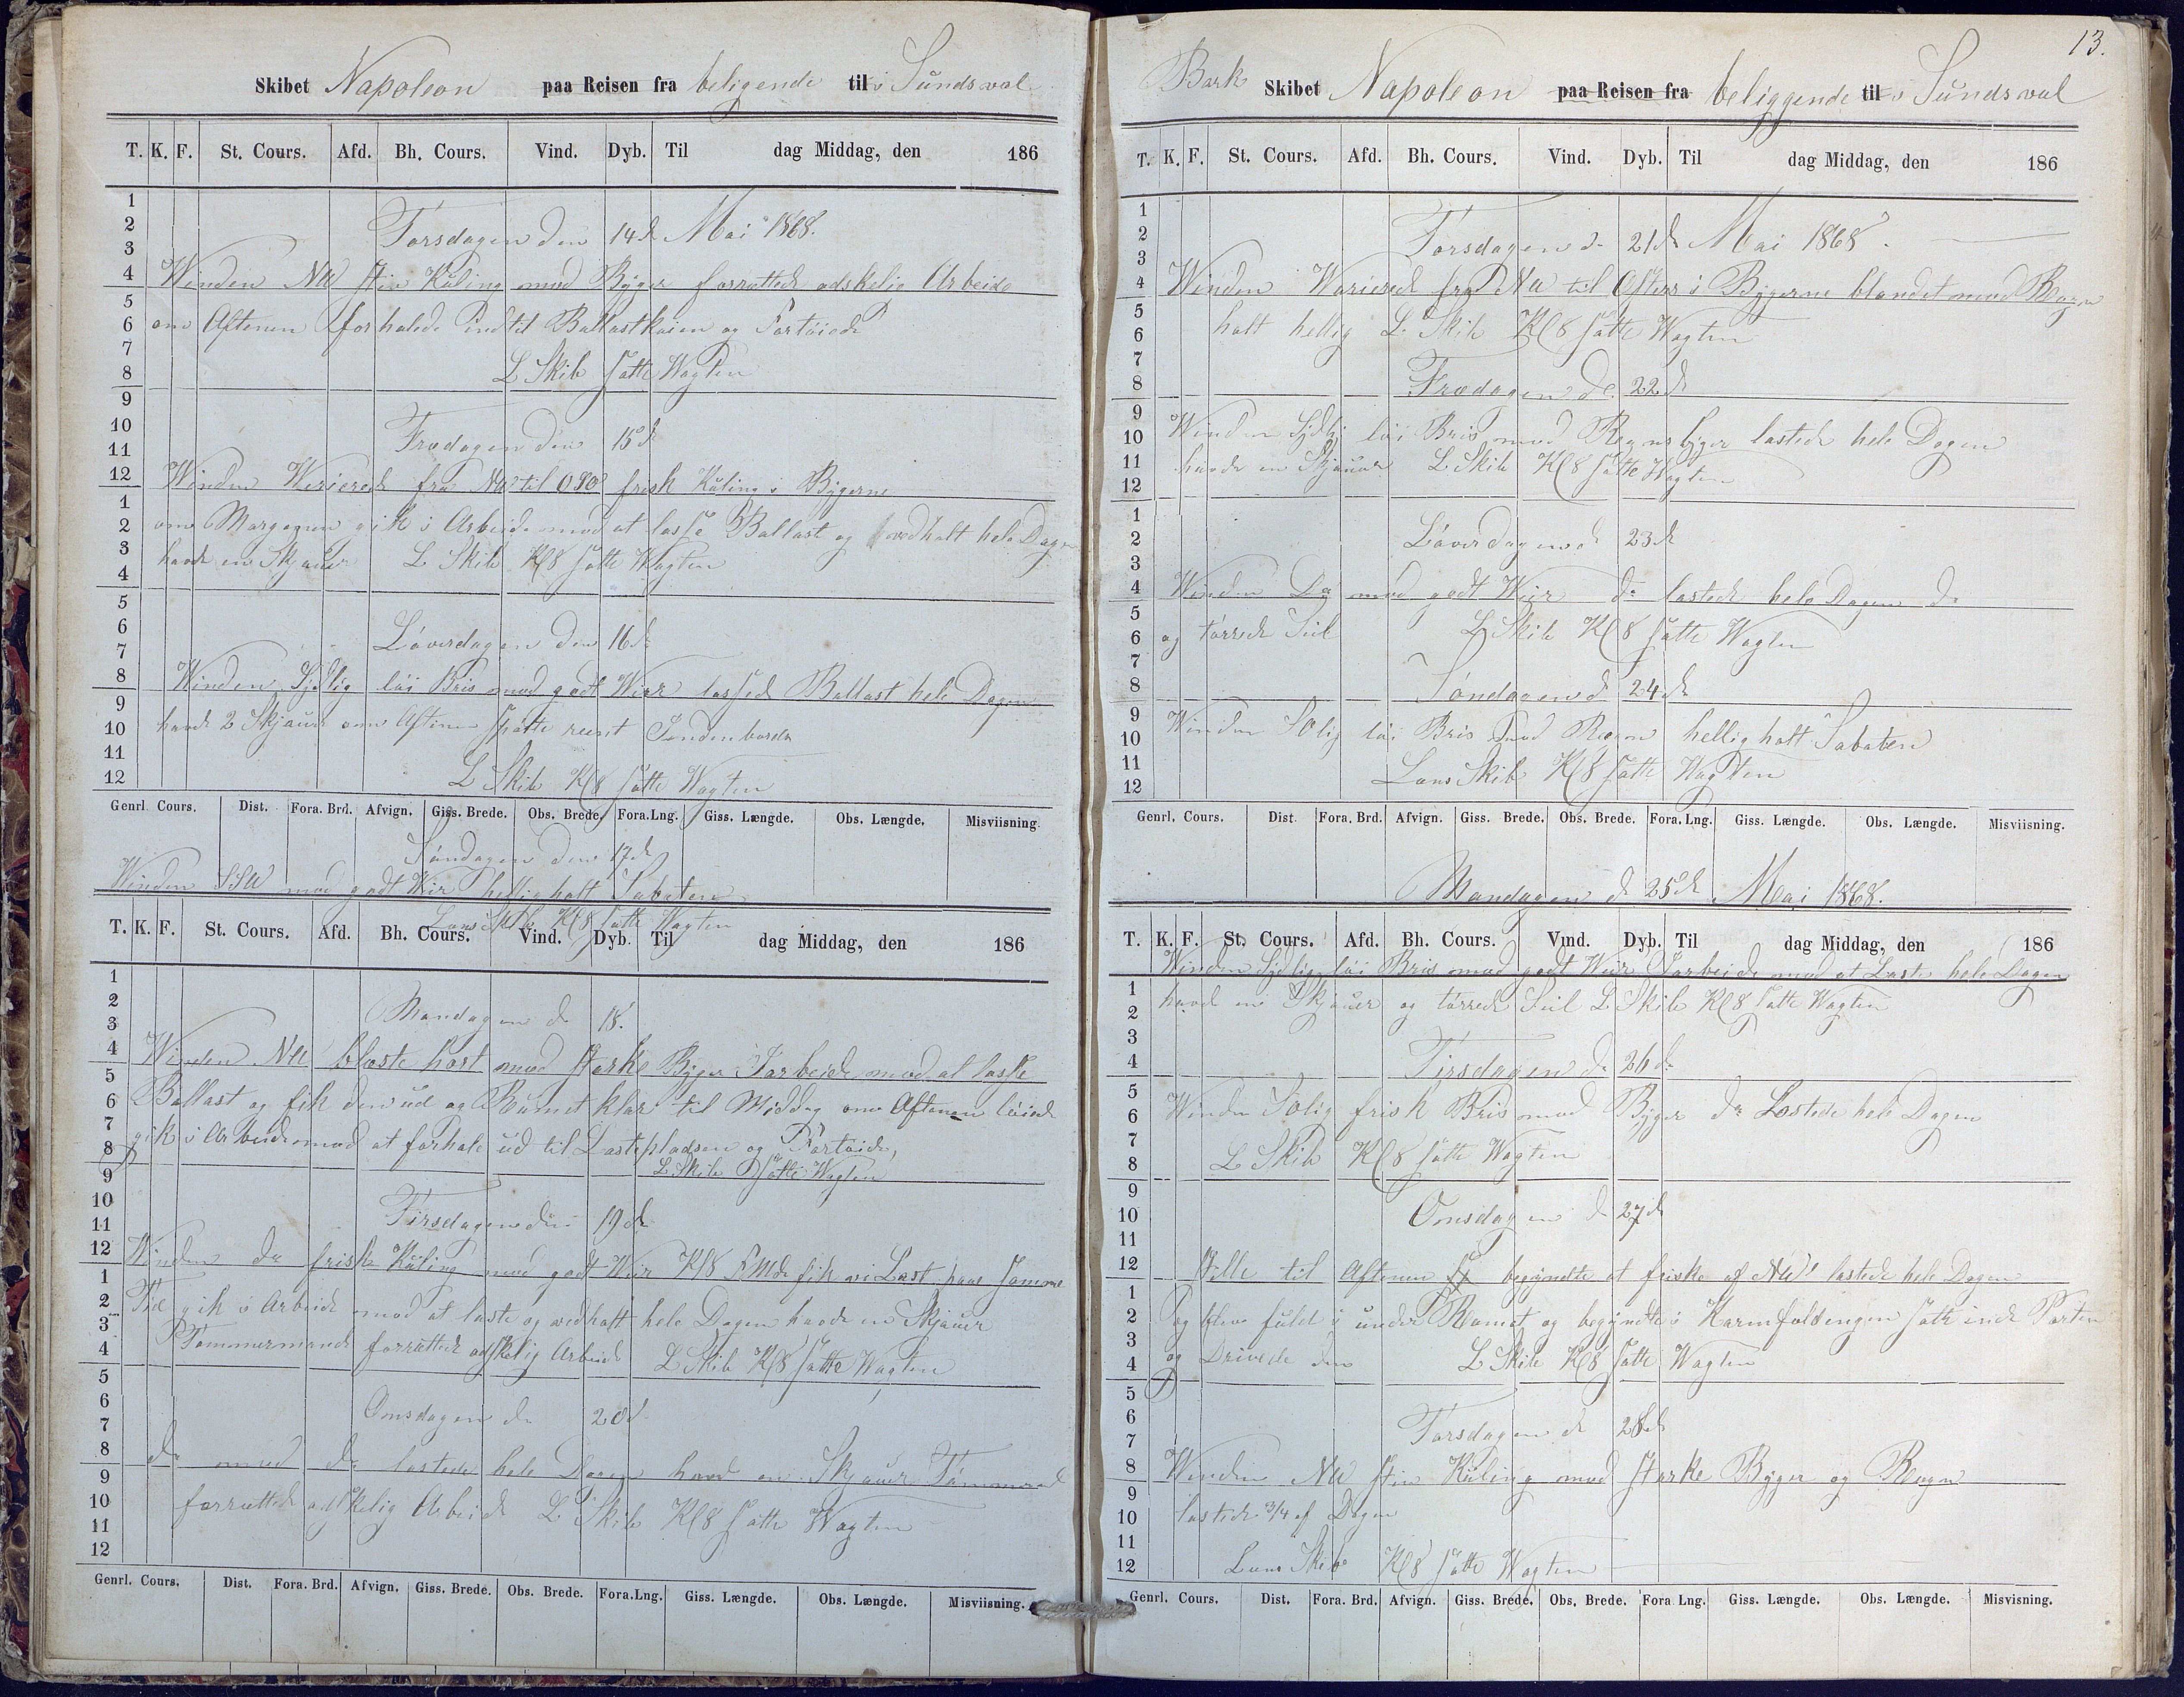 Skibet Napoleon paa Reisen fra beligende til i Sundsval
T. K. F. St. Cours. Afd. Bh. Cours. Vind. Dyb. Til dag Middag, den 186
1
2 Torsdagen den 14d Mai 1868.
3
4 Winden NW stiv Kuling med Byger forrettede adskelie Arbeide
5
6 om Aftenen forhalede indtil Ballastkaien og Fortøiede
7
8 L Skib satte Wagten
9
10 Fredagen den 15d
11
12 Winden Varierede fra NW til OSO frisk Kuling i Bygerne
1
2 om Morgenen gik i Arbeide med at losse Ballast og vedholt hele Dagen
3 havde en Skjauer L Skib Kl 8 satte Wagten
4
5
6 Løverdagen den 16d
7
8 Winden Sydlig løi Bris med godt Weir lossede Ballast hele Dagen
9
10 havde 2 Skjauer om Aftenen satte rundt Indenborde
11
12 L Skib Kl 8 satte Wagten
Genrl. Cours. Dist. Fora. Brd. Afvign. Giss. Brede. Obs. Brede. Fora.Lng. Giss. Længde. Obs. Længde. Misviisning.
Søndagen den 17d
Winden SSW med godt Weir hellig holt Sabaten
Lens Skib Kl 8 satte Wagten
T. K. F. St. Cours. Afd. Bh. Cours. Vind. Dyb. Til dag Middag, den 186
1
2 Mandagen d. 18.
3
4 Winden NW blæste hart med starke Byger I arbeide med at losse
5
6 Ballast og fik den ud og Rumet klar til Middag om Aftenen løiede
7
8 gik i Arbeide med at forhale ud til Lastepladsen og Fortøiede,
9 L Skib satte Wagten
10
11 Tirsdagen den 19d
12 Winden do frisk Kuling med godt Weir Kl 8 FMd fik vi Last paa samme
1
2 Tid gik i Arbeide med at laste og vedholt hele Dagen havde en Skjauer
3
4 Tømmermand forrettede adskelig Arbeide L Skib Kl 8 satte Wagten
5
6 Onsdagen d. 20d
7
8 do med do lastede hele Dagen havde en Skjauer
9
10 forrettede adskelig Arbeide L Skib Kl 8 satte Wagten
11
12
Genrl. Cours. Dist. Fora. Brd. Afvign. Giss. Brede. Obs. Brede. Fora.Lng. Giss. Længde. Obs. Længde. Misviisning.
13.
Bark Skibet Napoleon paa Reisen fra beliggende til i Sundsval
T. K. F. St. Cours. Afd. Bh. Cours. Vind. Dyb. Til dag Middag, den 186
1
2 Torsdagen d. 21d Mai 1868.
3
4 Winden Varierede fra NW til i Bygerne blandet med Regn
5
6 holt hellig L. Skib Kl 8 satte Wagten
7
8 Fredagen d. 22d
9
10 Winden Sydlig løi Bris med Regns byger lastede hele Dagen
11 havde en Skjauer L Skib Kl 8 satte Wagten
12
1
2 Løverdagen d 23d
3
4 Winden Do med godt Weir do lastede hele Dagen do
5
6 og tørrede Seil L Skib Kl 8 satte Wagten
7
8 Søndagen d 24d
9
10 Winden SOlig løi Bris med Regn hellig holt Sabaten
11
12 Lens Skib Kl 8 satte Wagten
Genrl. Cours. Dist. Fora. Brd. Afvign. Giss. Brede. Obs. Brede. Fora.Lng. Giss. Længde. Obs. Længde. Misviisning.
Mandagen d 25d Mai 1868.
T. K. F. St. Cours. Afd. Bh. Cours. Vind. Dyb. Til dag Middag, den 186
Winden Sydlig løi Bris med godt Weir I arbeide med at Laste hele Dagen
1 havde en Skjauer og tørrede Seil L Skib Kl 8 satte Wagten
2
3
4 Tirsdagen d. 26d
5
6 Winden SOlig frisk Bris med Byger do Lastede hele Dagen
7
8 L Skib Kl 8 satte Wagten
9
10 Onsdagen d 27d
11
12 Stille til Aftenen begyndte at friske af NW lastede hele Dagen
1
2 og blev fuld i under Rumet og begyndte i satte inde Porten
3
4 og Drivede den L Skib Kl 8 satte Wagten
5
6
7 Torsdagen d 28d
8 Winden NW stiv Kuling med starke Byger og Regn
9
10 lastede 3/4 af Dagen
11
12 Lens Skib Kl 8 satte Wagten
Genrl. Cours. Dist. Fora. Brd. Afvign. Giss. Brede. Obs. Brede. Fora Lng. Giss. Længde. Obs. Længde. Misvisning.